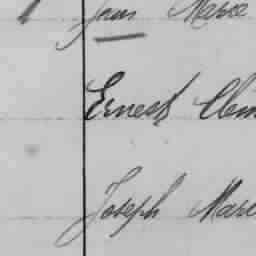 Jean Marie
Ernest Clem
Joseph Mari